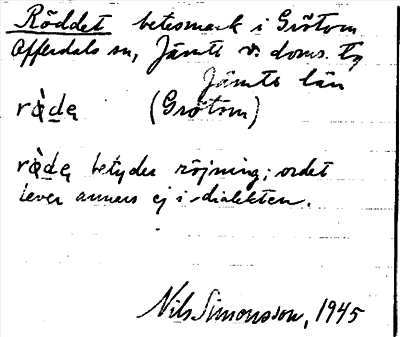 Röddet betesmark i Grötom
Offerdals sn, Jämts v. doms. tg
Jämts län
rȧ̀dę (Grötom)
rȧ̀dę betyder röjning; ordet
lever annars ej i dialekten.
Nils Simonsson, 1945